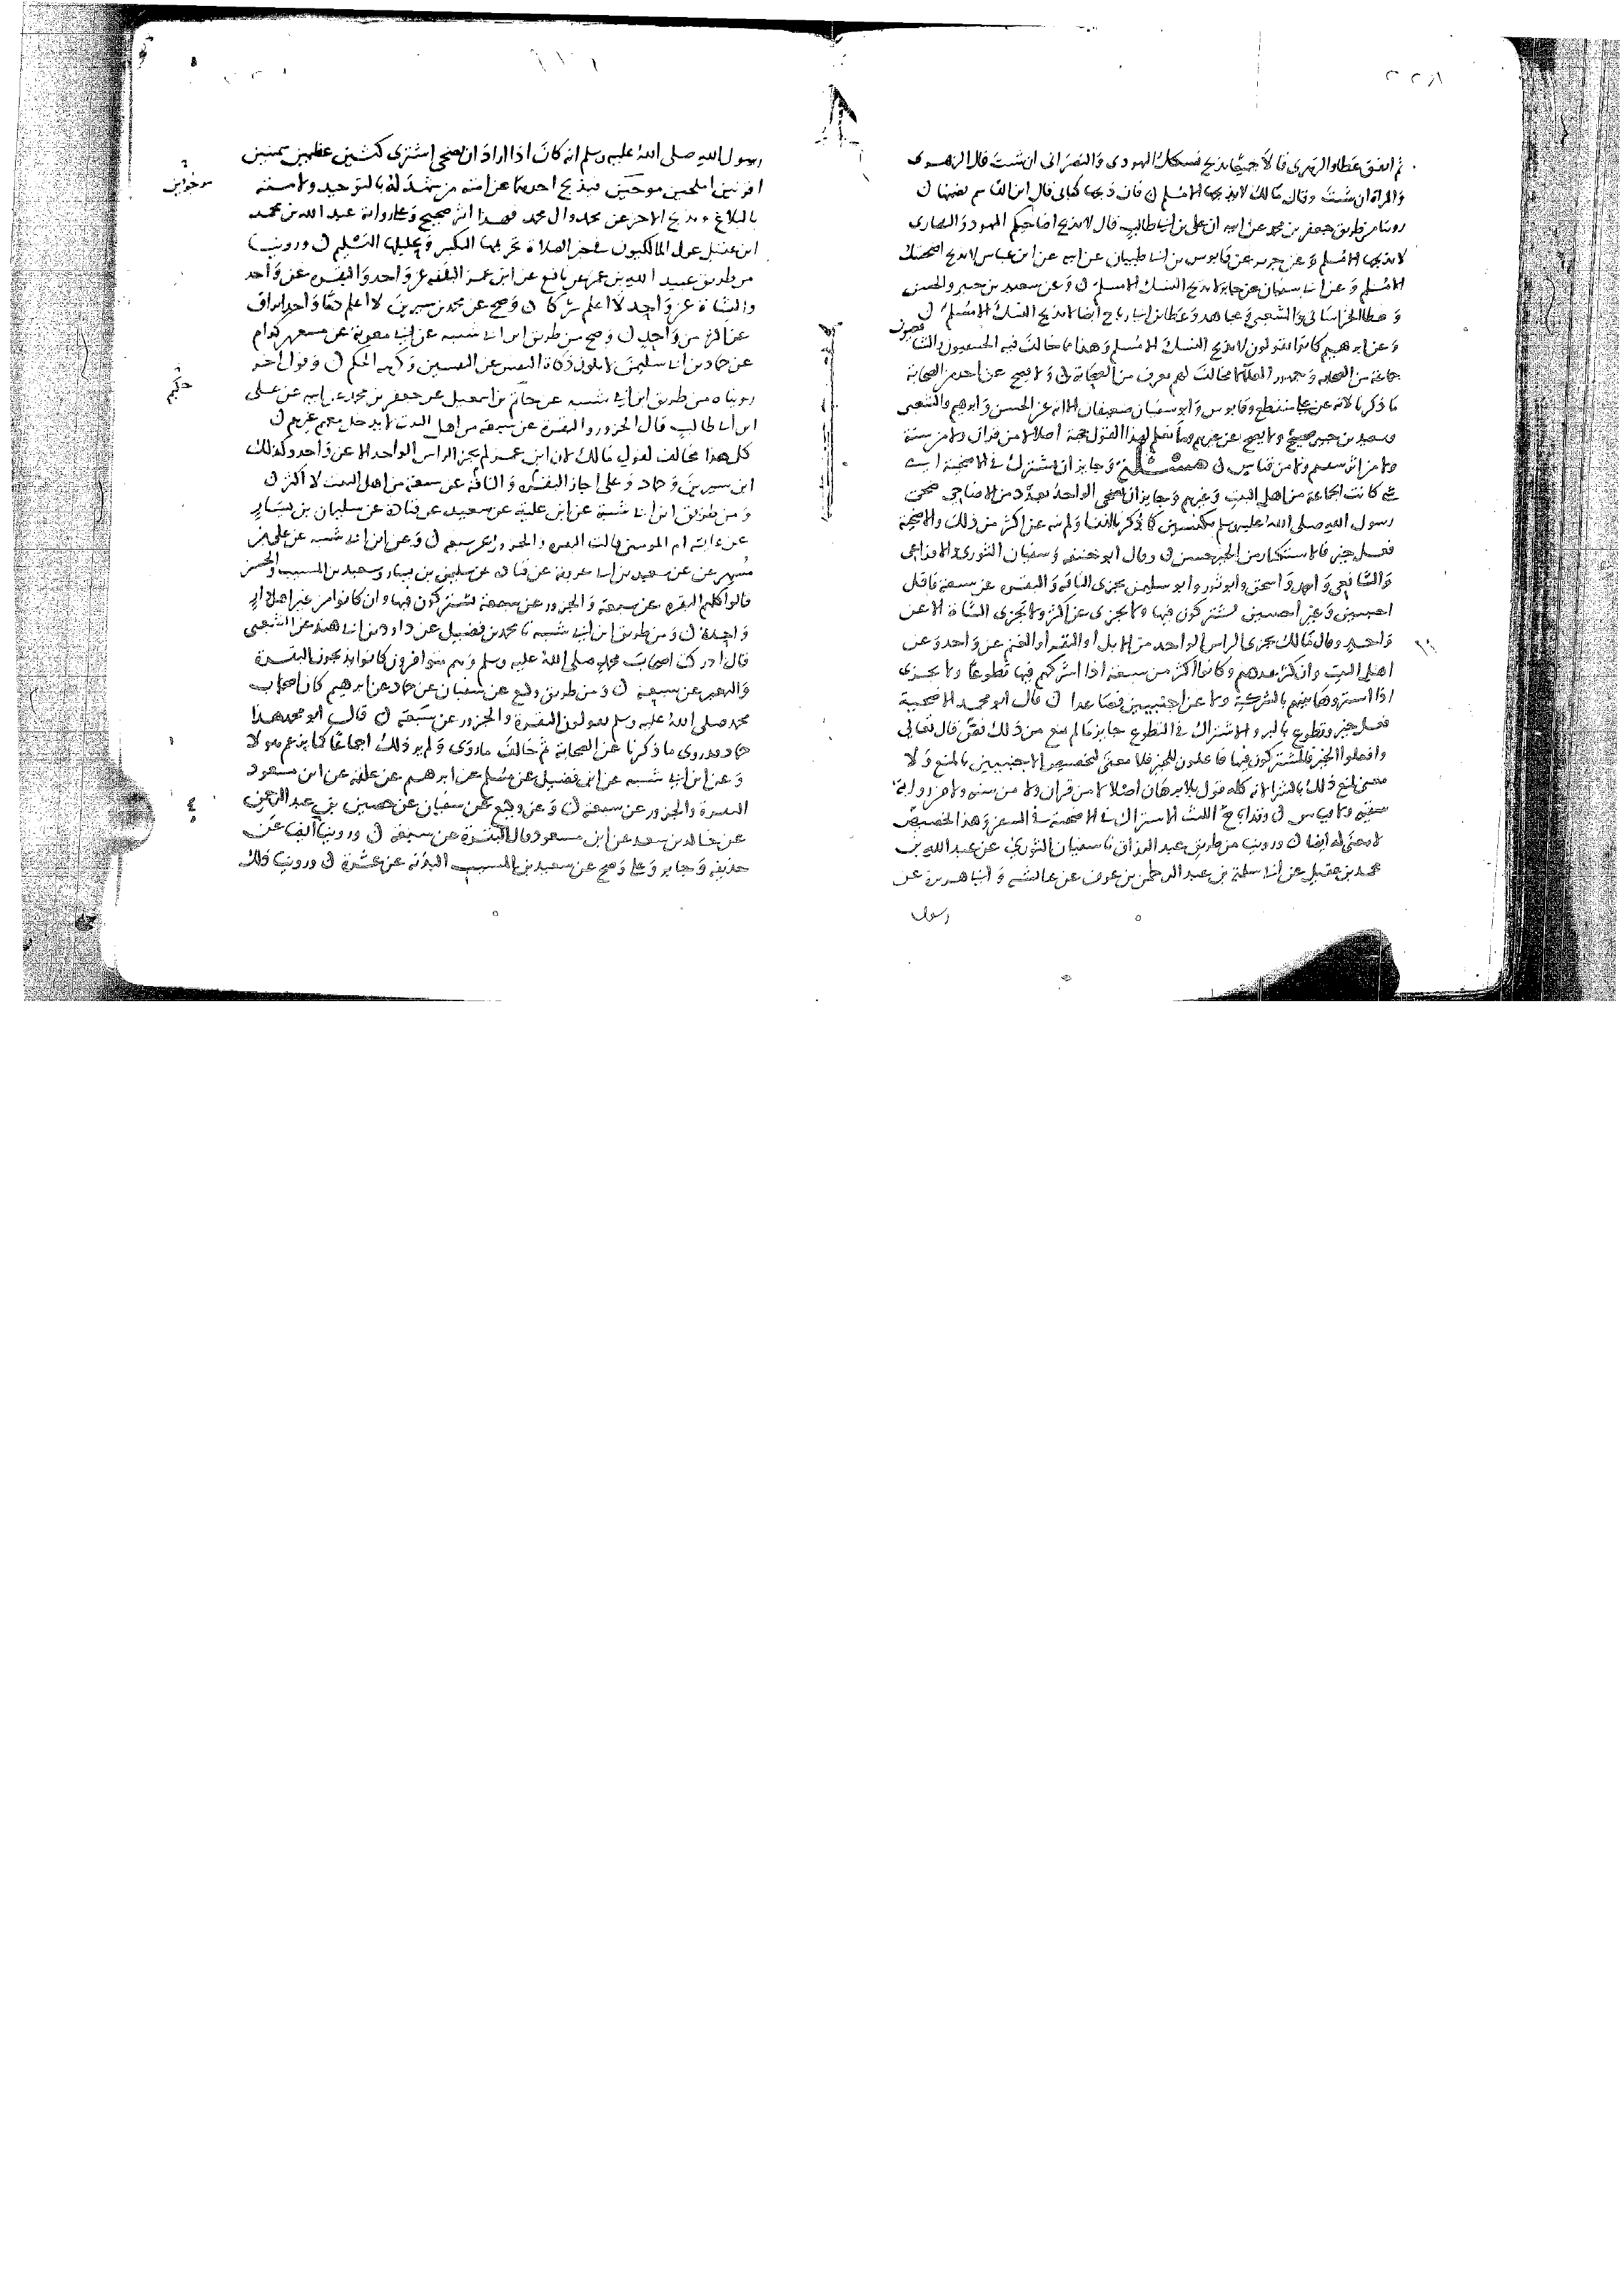 ثم اتفق عطاء والزهري قالا جميعا يذبح نسكك اليهودي والنصراني ان شئت قال الزهري
والمراة ان شئت وقال مالك لا يذبحها الا مسلم فان ذبحها كتابي قال ابن القاسم يضمنها
روينا من طريق جعفر بن محمد عن ابيه ان علي بن ابي طالب قال لا يذبح اضاحيكم اليهود والنصارى
لا يذبحها الا مسلم وعن جرير عن قابوس بن ابي ظبيان عن ابيه عن ابن عباس لا يذبح اضحيتك
الا مسلم وعن ابي سفيان عن جابر لا يذبح النسك الا مسلم وعن سعيد بن جبير والحسن
وعطا الخراساني والشعبي ومجاهد وعطا بن ابي رباح ايضا لا يذبح النسك الا مسلم
وعن ابرهيم كانوا يقولون لا يذبح النسك الا مسلم وهذا مما خالف فيه الحنفيون والشافعيون
جماعة من الصحابة وجمهور العلما لا مخالف لهم يعرف من الصحابة ولا يصح عن احد من الصحابة
ما ذكرنا لانه عن علي منقطع وقابوس وابو سفيان ضعيفان الا انه عن الحسن وابرهيم والشعبي
وسعيد بن جبير صحيح ولا يصح عن غيرهم وما نعلم لهذا القول حجة اصلا لا من قران ولا من سنة
ولا من اثر سقيم ولا من قياس مسئلة وجايز ان يشترك في الاضحية
كانت الجماعة من اهل البيت وغيرهم وجايز ان يضحي الواحد بعدد من الاضاحي ضحى
رسول الله صلى الله عليه وسلم بكبشين كما ذكرنا انفا ولم ينه عن اكثر من ذلك والاضحية
فعل خير فالاستكثار من الخير حسن وقال ابو حنيفة وسفيان الثوري والاوزاعي
والشافعي واحمد واسحق وابو ثور وابو سليمن تجزى الناقة والبقرة عن سبعة فاقل
اجنبيين وغير اجنبيين يشتركون فيها ولا تجزى عن اكثر ولا تجزى الشاة الا عن
واحد وقال مالك يجزى الراس الواحد من الابل او البقر او الغنم عن واحد وعن
اهل البيت وان كثر عددهم وكانوا اكثر من سبعة اذا اشركهم فيها تطوعا ولا يجزى
اذا اشتروها بينهم بالشركة ولا عن اجنبيين فصاعدا قال ابو محمد الاضحية
فعل خير وتطوع بالبر والاشتراك في التطوع جايز ما لم يمنع من ذلك نص قال تعالى
وافعلوا الخير فالمشتركون فيها فاعلون للخير فلا معنى لتخصيص الاجنبيين بالمنع ولا
معنى لمنع ذلك بالشرا لانه كله قول بلا برهان اصلا لا من قران ولا من سنة ولا من رواية
سقيمة ولا قياس وقد اباح الليث الاشتراك في الاضحية في السفر وهذا تخصيص
لا معنى له ايضا وروينا من طريق عبد الرزاق نا سفيان الثوري عن عبد الله بن
محمد بن عقيل عن ابي سلمة بن عبد الرحمن بن عوف عن عائشة وابي هريرة عن
رسول
رسول الله صلى الله عليه وسلم انه كان اذا اراد ان يضحي اشترى كبشين عظيمين سمينين
اقرنين املحين موجيين فيذبح احدهما عن امته من شهد لله بالتوحيد ولامته
بالبلاغ ويذبح الاخر عن محمد وال محمد فهذا اثر صحيح وعلى رواية عبد الله بن محمد
ابن عقيل عول المالكيون في خبر الصلاة تحريمها التكبير وتحليلها التسليم وروينا
من طريق عبيد الله بن عمر عن نافع عن ابن عمر البقرة عن واحد
والشاة عن واحد لا اعلم شركا وصح عن محمد بن سيرين لا اعلم دما واحدا يراق
عن اكثر من واحد وصح من طريق ابن ابي شيبة عن ابي معوية عن مسعر بن كدام
عن حماد بن ابي سليمن لا يكون ذكاة النفس عن النفسين وكره الحكم وقول اخر
رويناه من طريق ابن ابي شيبة عن حاتم بن اسمعيل عن جعفر بن محمد عن ابيه عن علي
ابن ابي طالب قال الجزور والبقرة عن سبعة من اهل البيت لا يدخل معهم غيرهم
كل هذا مخالف لقول مالك لان ابن عمر لم يجز الراس الواحد الا عن واحد وكذلك
ابن سيرين وحماد وعلي اجاز البقرة والناقة عن سبعة من اهل البيت لا اكثر
ومن طريق ابن ابي شيبة عن ابن علية عن سعيد عن قتادة عن سليمان بن يسار
عن عايشة ام المومنين قالت البقرة والجزور عن سبعة وعن ابن ابي شيبة عن علي بن
مسهر عن سعيد بن ابي عروبة عن قتادة عن سليمن بن يسار وسعيد بن المسيب والحسن
قالوا كلهم البقرة عن سبعة والجزور عن سبعة يشتركون فيها وان كانوا من غير اهل دار
واحدة ومن طريق ابن ابي شيبة نا محمد بن فضيل عن داود بن ابي هند عن الشعبي
قال ادركت اصحاب محمد صلى الله عليه وسلم وهم متوافرون كانوا يذبحون البقرة
والبعير عن سبعة ومن طريق وكيع عن سفيان عن حماد عن ابرهيم كان اصحاب
محمد صلى الله عليه وسلم يقولون البقرة والجزور عن سبعة قال ابو محمد هذا
حماد قد روى ما ذكرنا عن الصحابة ثم خالف ما روى ولم ير ذلك اجماعا كما يزعم هولا
وعن ابن ابي شيبة عن ابن فضيل عن مسلم عن ابرهيم عن علقمة عن ابن مسعود
البقرة والجزور عن سبعة وعن وكيع عن سفيان عن حصين بن عبد الرحمن
عن خالد بن سعد عن ابن مسعود قال البقرة عن سبعة وروينا ايضا عن
حذيفة وجابر وعلي وصح عن سعيد بن المسيب البدنة عن عشرة وروينا ذلك